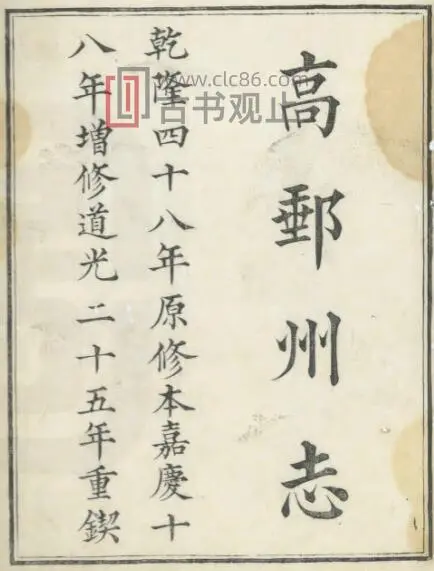 高郵州志
乾隆四十八年原修本嘉慶十
八年增修道光二十五年重鍥
www.clc86.com
古书观止